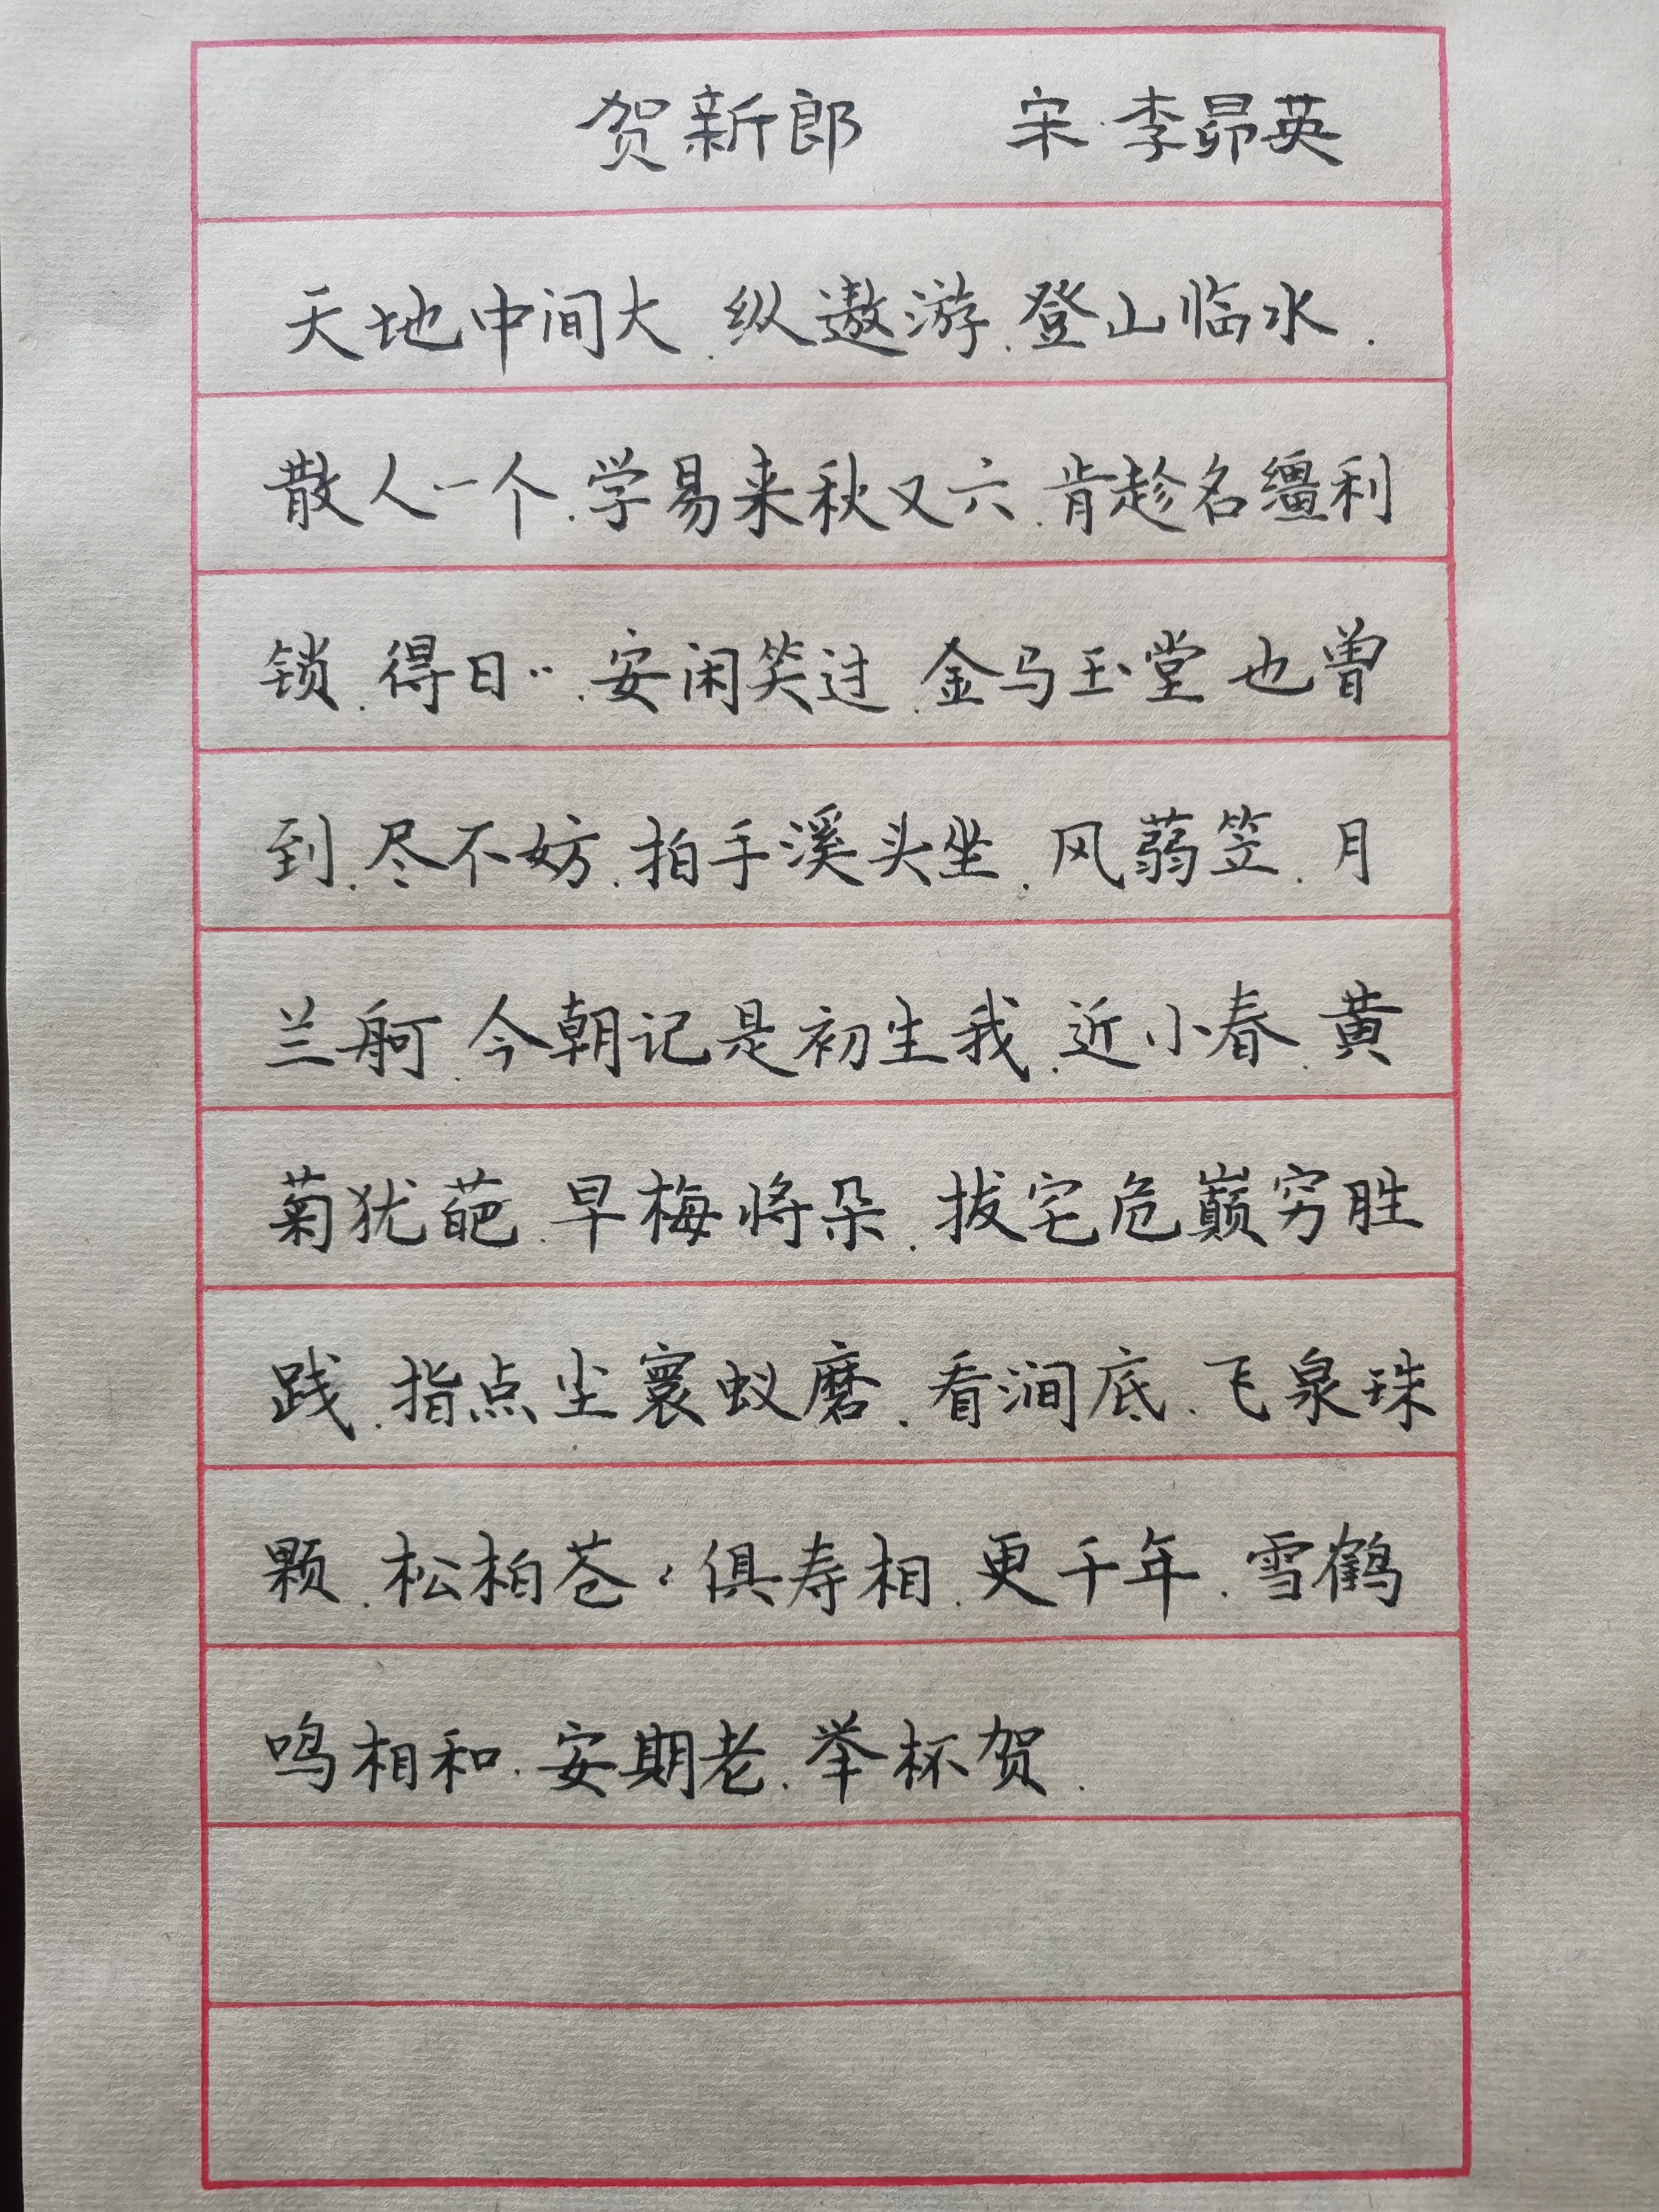 贺新郎 宋·李昴英
天地中间大.纵遨游.登山临水.
散人一个.学易来秋又六.肯趁名缰利
锁.得日〃.安闲笑过.金马玉堂也曾
到.尽不妨.拍手溪头坐.风蒻笠.月
兰舸.今朝记是初生我.近小春.黄
菊犹葩.早梅将朵.拔宅危巅穷胜
践.指点尘寰蚁磨.看涧底.飞泉珠
颗.松柏苍〻俱寿相.更千年.雪鹤
鸣相和.安期老.举杯贺.